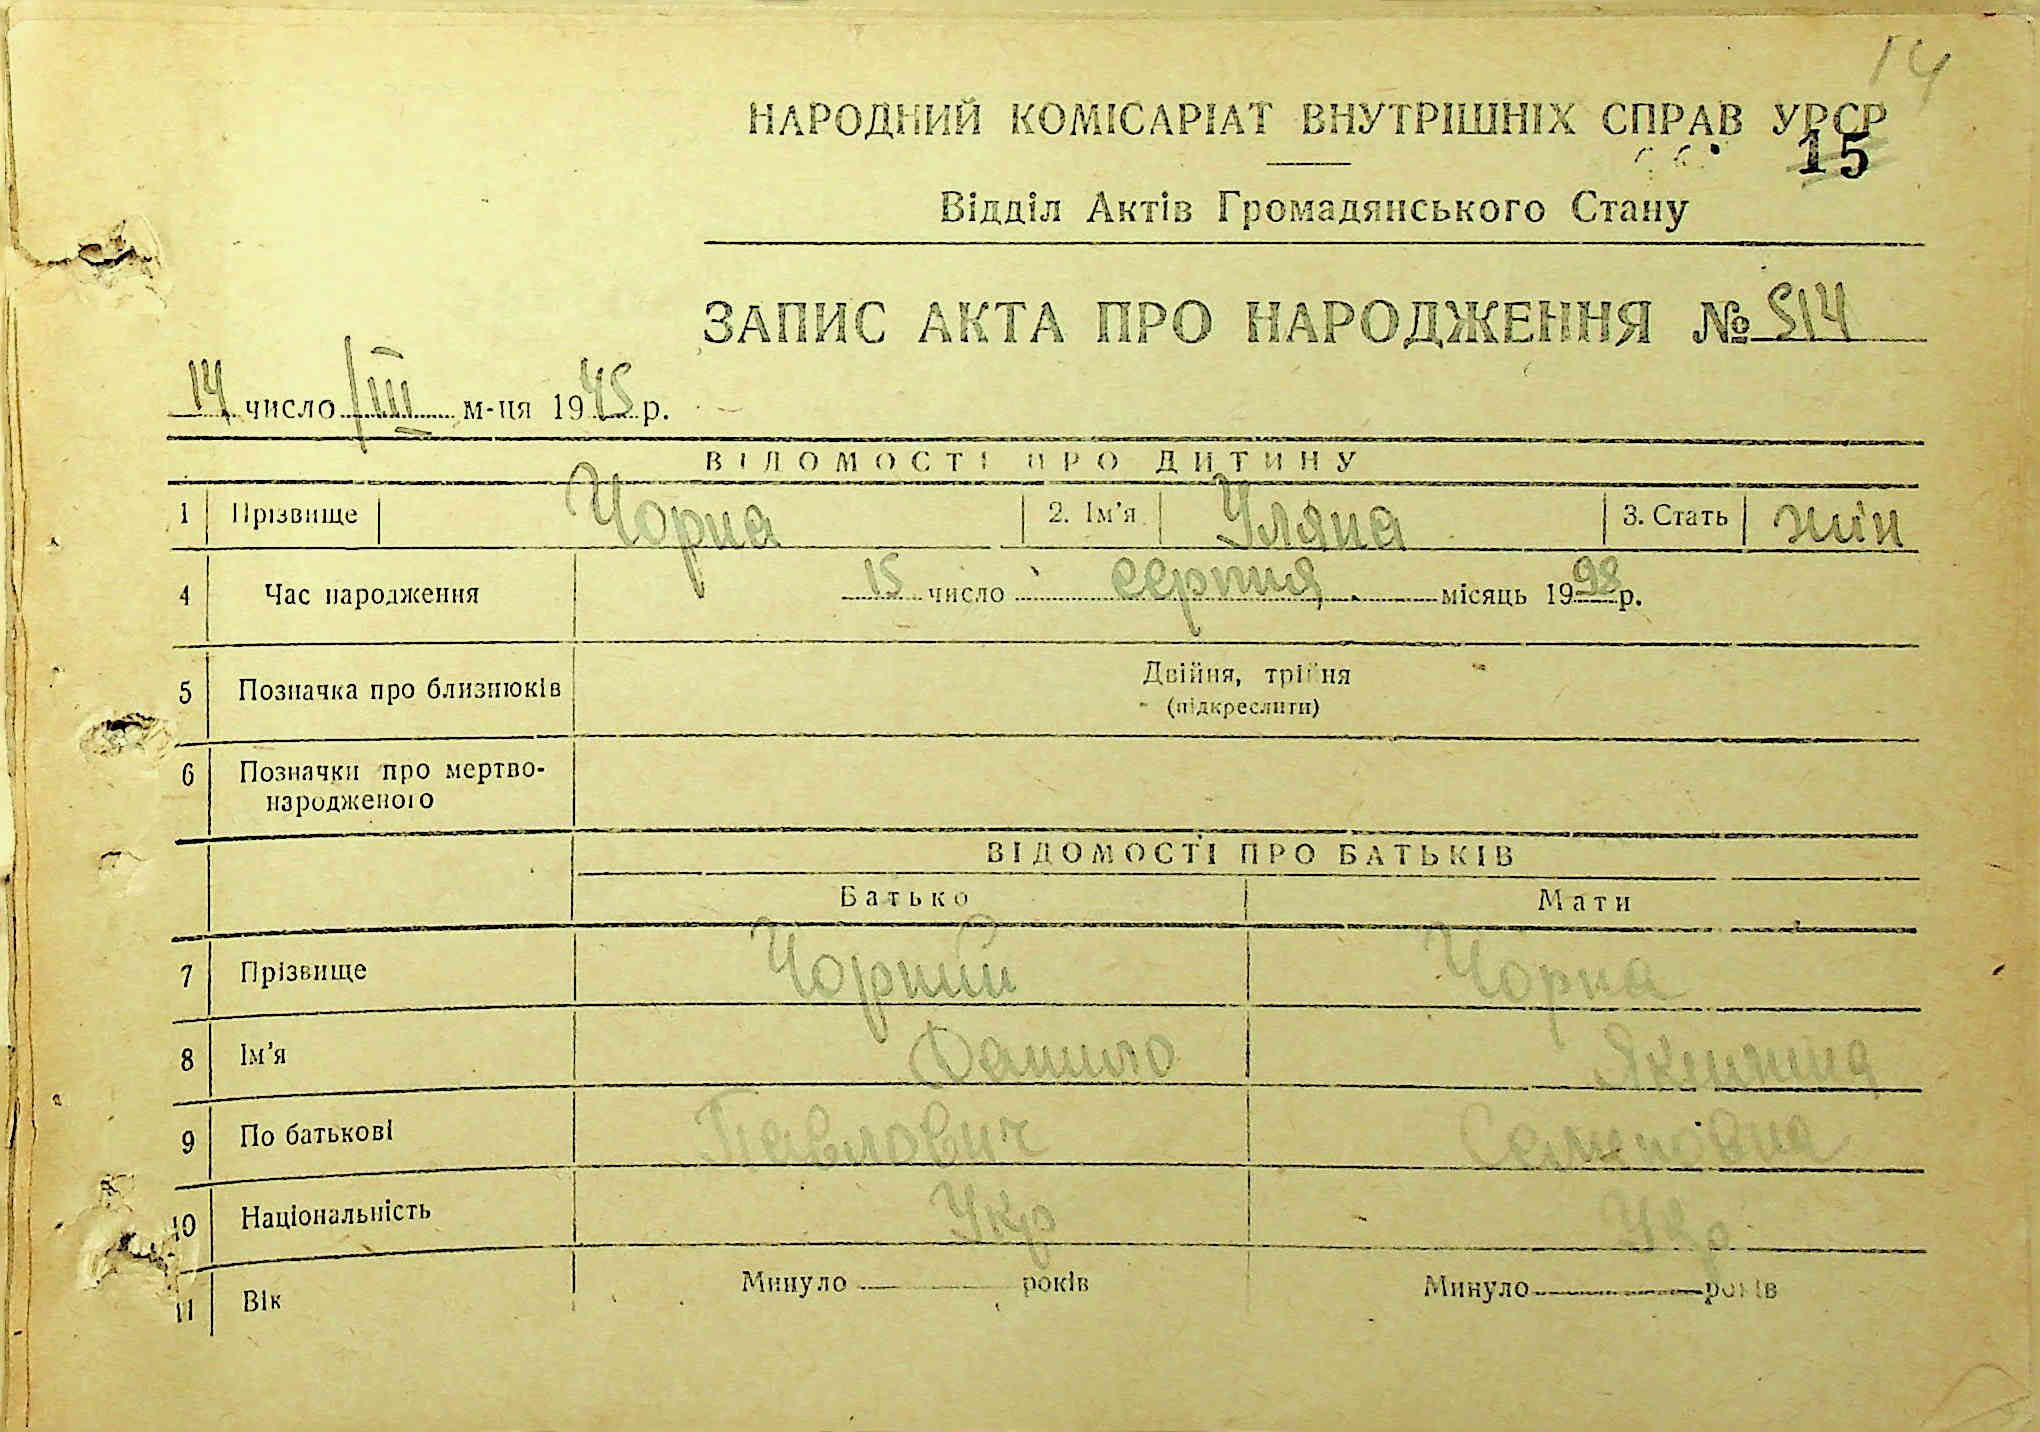 14
НАРОДНИЙ КОМІСАРІАТ ВНУТРІШНІХ СПРАВ УРСР
15
Відділ Актів Громадянського Стану
ЗАПИС АКТА ПРО НАРОДЖЕННЯ № 514
14 число III м-ця 1945 р.
ВІДОМОСТІ ПРО ДИТИНУ
1 Прізвище Чорна 2. Ім’я Уляна 3. Стать жін
4 Час народження 15 число серпня місяць 1998 р.
5 Позначка про близнюків Двійня, трійня
(підкреслити)
6 Позначки про мертво-
народженого
ВІДОМОСТІ ПРО БАТЬКІВ
Батько Мати
7 Прізвище Чорний Чорна
8 Ім’я Данило Якилина
9 По батькові Павлович Семеновна
10 Національність Укр Укр
11 Вік Минуло років Минуло років